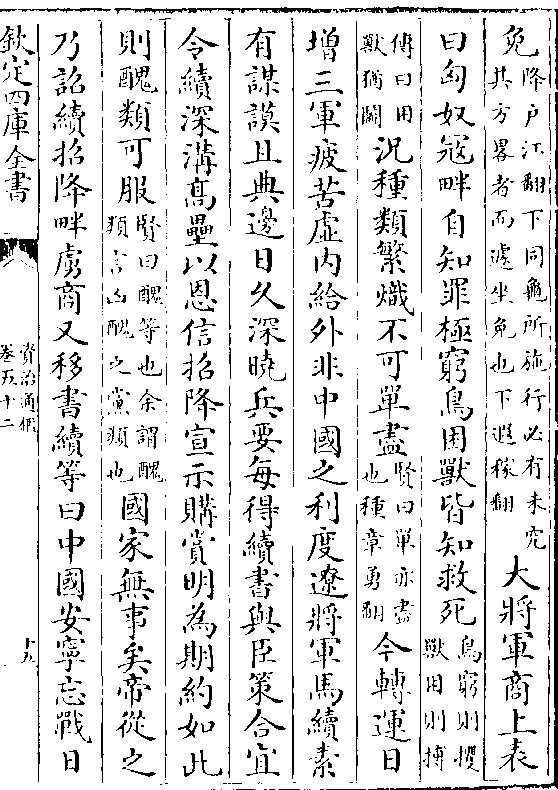 免降户江翻下同龜所施行必有未究其方畧者而遽坐免也下遐稼翻大將軍商上表
曰匈奴寇畔自知罪極窮鳥困獸皆知救死鳥窮則攫獸困則搏
傳曰困獸猶鬭況種類繁熾不可單盡賢曰單亦盡也種章勇翻今轉運日
增三軍疲苦虛内給外非中國之利度遼將軍馬續素
有謀謨且典邊日久深曉兵要每得續書與臣策合宜
令續深溝髙壘以恩信招降宣示購賞明為期約如此
則醜類可服賢曰醜等也余謂醜類言凶醜之黨類也國家無事矣帝從之
乃詔續招降畔虜商又移書續等曰中國安寧忘戰日
欽定四庫全書
資治通鑑
卷五十二
十五